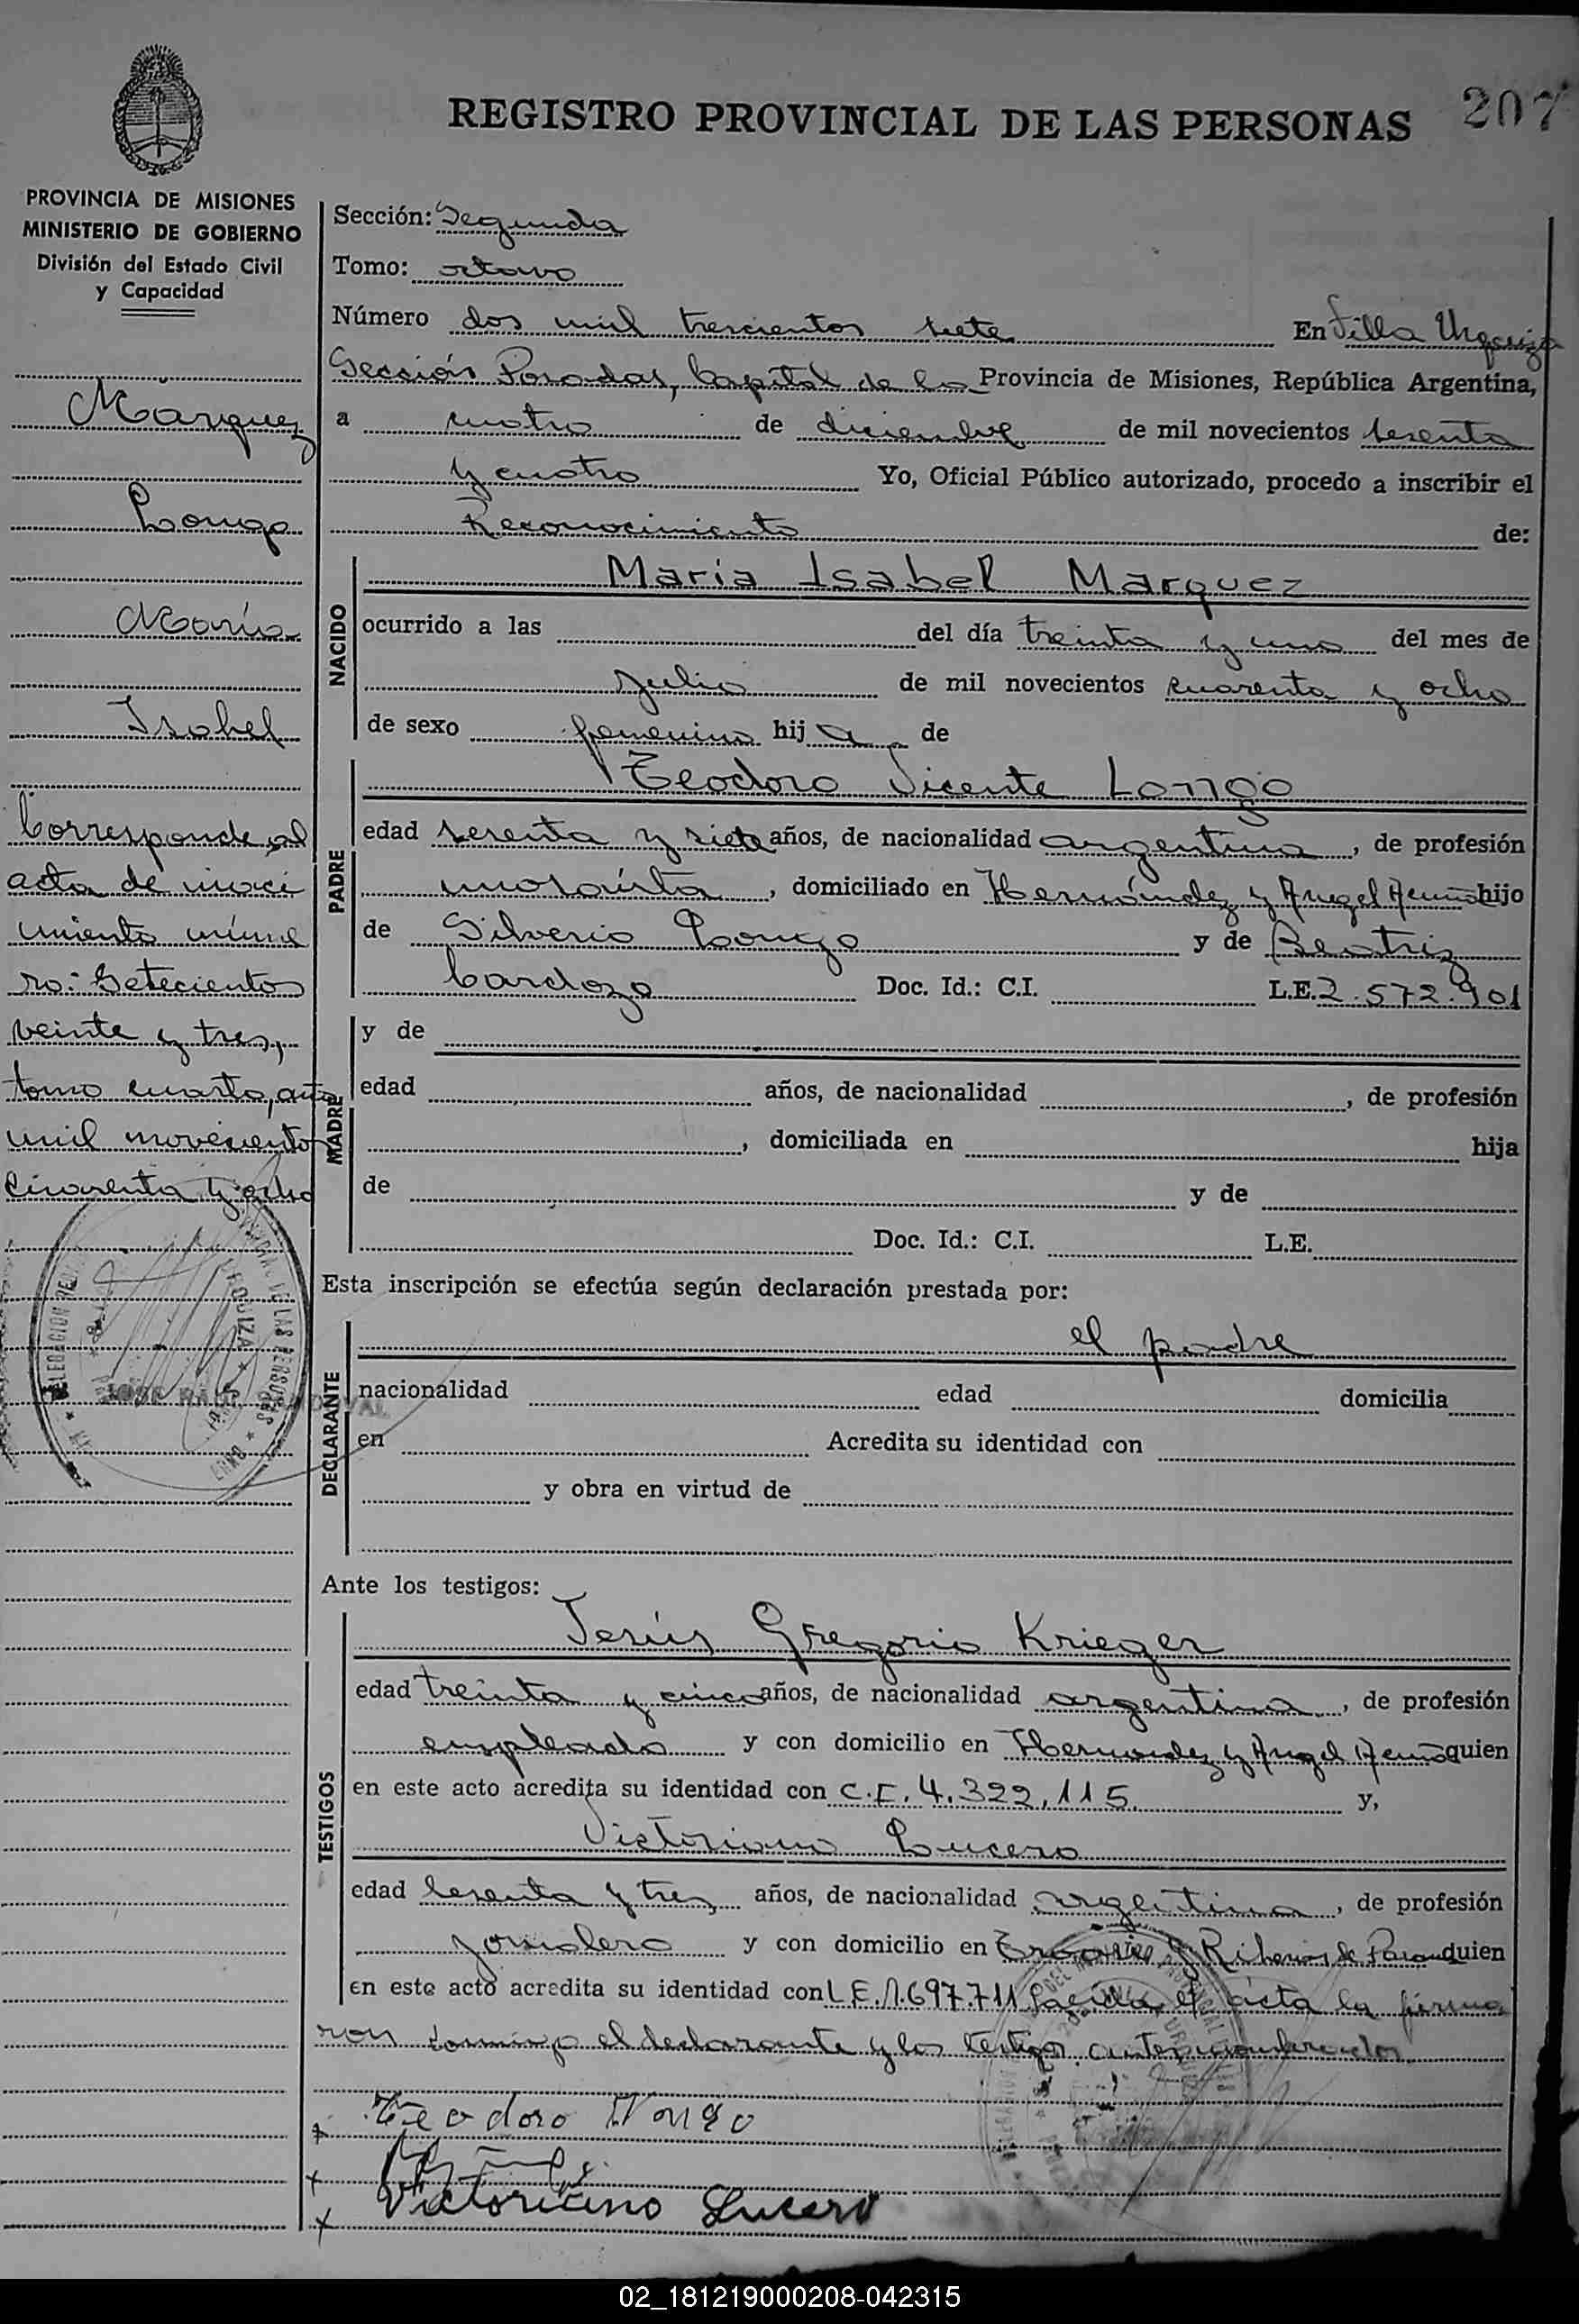 REGISTRO PROVINCIAL DE LAS PERSONAS 207
PROVINCIA DE MISIONES
MINISTERIO DE GOBIERNO
División del Estado Civil
y Capacidad
Marquez
Longo
María
Isabel
Corresponde al
acta de naci
miento núme
ro: Setecientos
veinte y tres,
tomo cuarto, año
mil novecientos
cuarenta y ocho
Sección: Segunda
Tomo: octavo
Número dos mil trescientos siete En Villa Urquiza
Sección Posadas, Capital de la Provincia de Misiones, República Argentina,
a cuatro de diciembre de mil novecientos sesenta
y cuatro Yo, Oficial Público autorizado, procedo a inscribir el
Reconocimiento de:
NACIDO
Maria Isabel Marquez
ocurrido a las del día treinta y uno del mes de
julio de mil novecientos cuarenta y ocho
de sexo femenino hija de
PADRE
Teodoro Vicente Longo
edad sesenta y siete años, de nacionalidad argentina, de profesión
, domiciliado en Hernández y Angel Acuña hijo
de Silverio Longo y de Beatriz
Cardozo Doc. Id.: C.I. L.E. 2.572.901
MADRE
y de
edad años, de nacionalidad , de profesión
, domiciliada en hija
de y de
Doc. Id.: C.I. L.E.
Esta inscripción se efectúa según declaración prestada por:
DECLARANTE
el padre
nacionalidad edad domicilia
en Acredita su identidad con
y obra en virtud de
Ante los testigos:
TESTIGOS
Jesús Gregorio Krieger
edad treinta y cinco años, de nacionalidad argentina, de profesión
empleado y con domicilio en Hernandez y Angel Acuña quien
en este acto acredita su identidad con C.I. 4.322.115. y,
Victoriano Lucero
edad sesenta y tres años, de nacionalidad argentina, de profesión
jornalero y con domicilio en y quien
en este acto acredita su identidad con L.E. 1.697.711 Leída el acta la firma
ron conmigo el declarante y los testigos antenombrados
Teodoro Longo
Victoriano Lucero
02_181219000208-042315